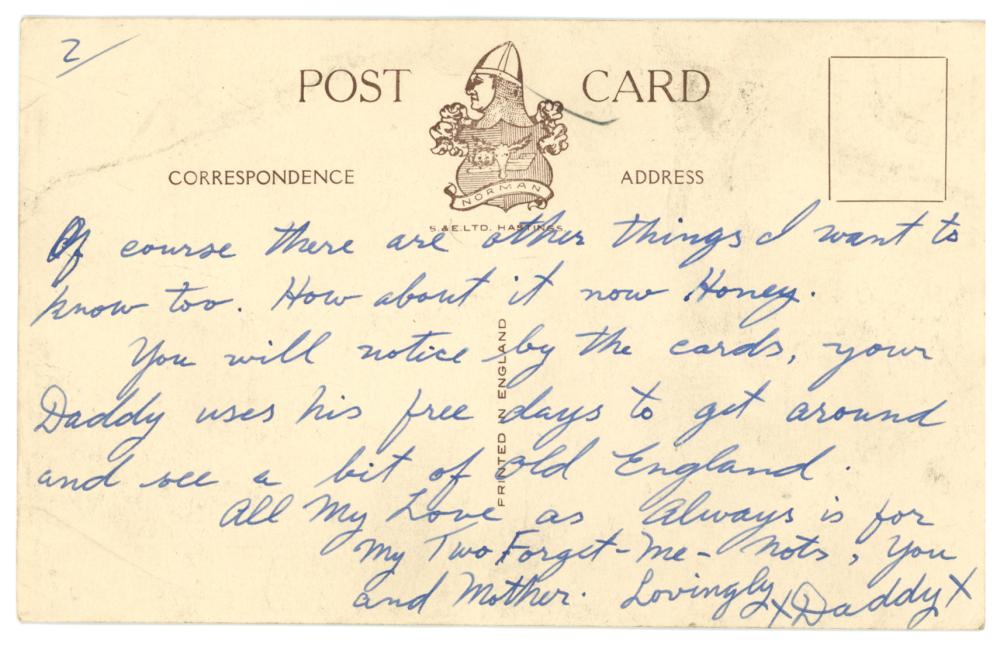 2/
POST CARD
CORRESPONDENCE
ADDRESS
NORMAN
S.&E.LTD. HASTINGS.
Of course there are other things I want to
know too. How about it now Honey.
You will notice by the cards, your
Daddy uses his free days to get around
and see a bit of Old England.
All My Love as Always is for
My Two Forget-Me-Nots, You
and Mother. Lovingly xDaddyx
PRINTED IN ENGLAND